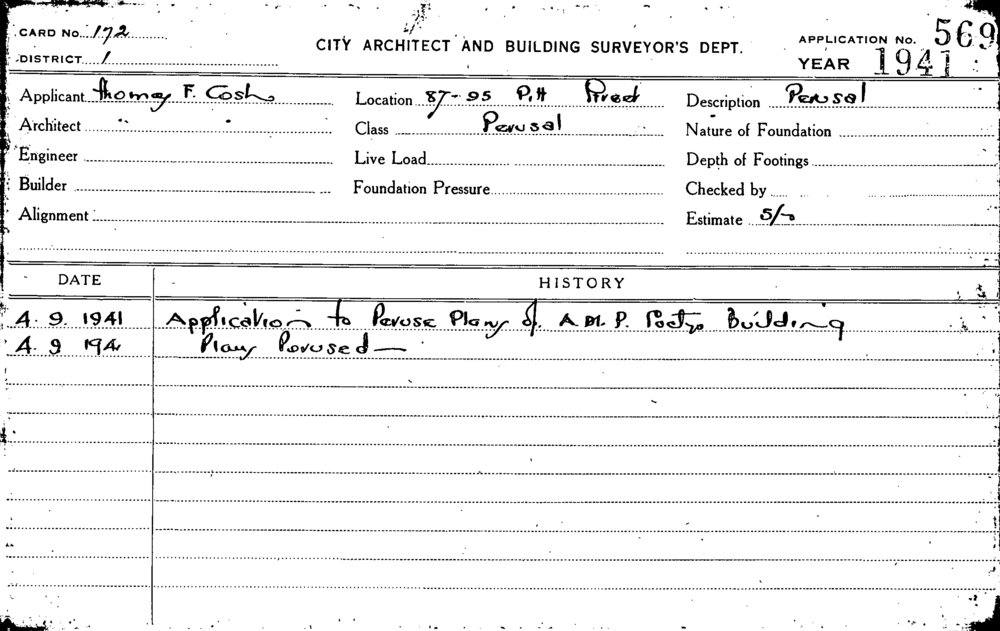 CARD No. 172
DISTRICT 1
CITY ARCHITECT AND BUILDING SURVEYOR'S DEPT.
APPLICATION No. 569
YEAR 1941
Applicant Thomas F. Cosh Location 87-95 Pitt Street Description Perusal
Architect Class Perusal Nature of Foundation
Engineer Live Load Depth of Footings
Builder Foundation Pressure Checked by
Alignment Estimate 5/-
DATE HISTORY
4. 9. 1941 Application to Peruse Plans of A.M.P. Socty's Building
4. 9 194 Plans Perused